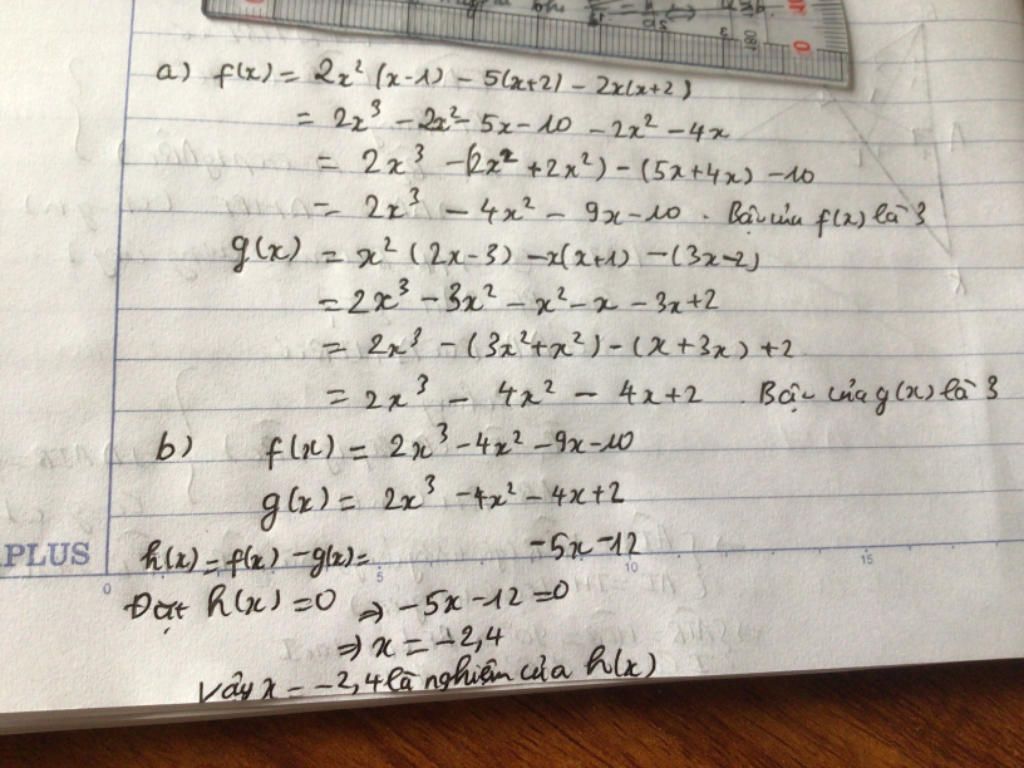 a) f(x) = 2x² (x-1) - 5(x+2) - 2x(x+2)
= 2x³ - 2x² - 5x - 10 - 2x² - 4x
= 2x³ - (2x² + 2x²) - (5x + 4x) - 10
= 2x³ - 4x² - 9x - 10 . Bậc của f(x) là 3
g(x) = x² (2x-3) - x(x+1) - (3x-2)
= 2x³ - 3x² - x² - x - 3x + 2
= 2x³ - (3x² + x²) - (x + 3x) + 2
= 2x³ - 4x² - 4x + 2 . Bậc của g(x) là 3
b) f(x) = 2x³ - 4x² - 9x - 10
g(x) = 2x³ - 4x² - 4x + 2
h(x) = f(x) - g(x) = -5x - 12
PLUS
0 5 10 15
Đặt h(x) = 0 ⇒ -5x - 12 = 0
⇒ x = -2,4
Vậy x = -2,4 là nghiệm của h(x)